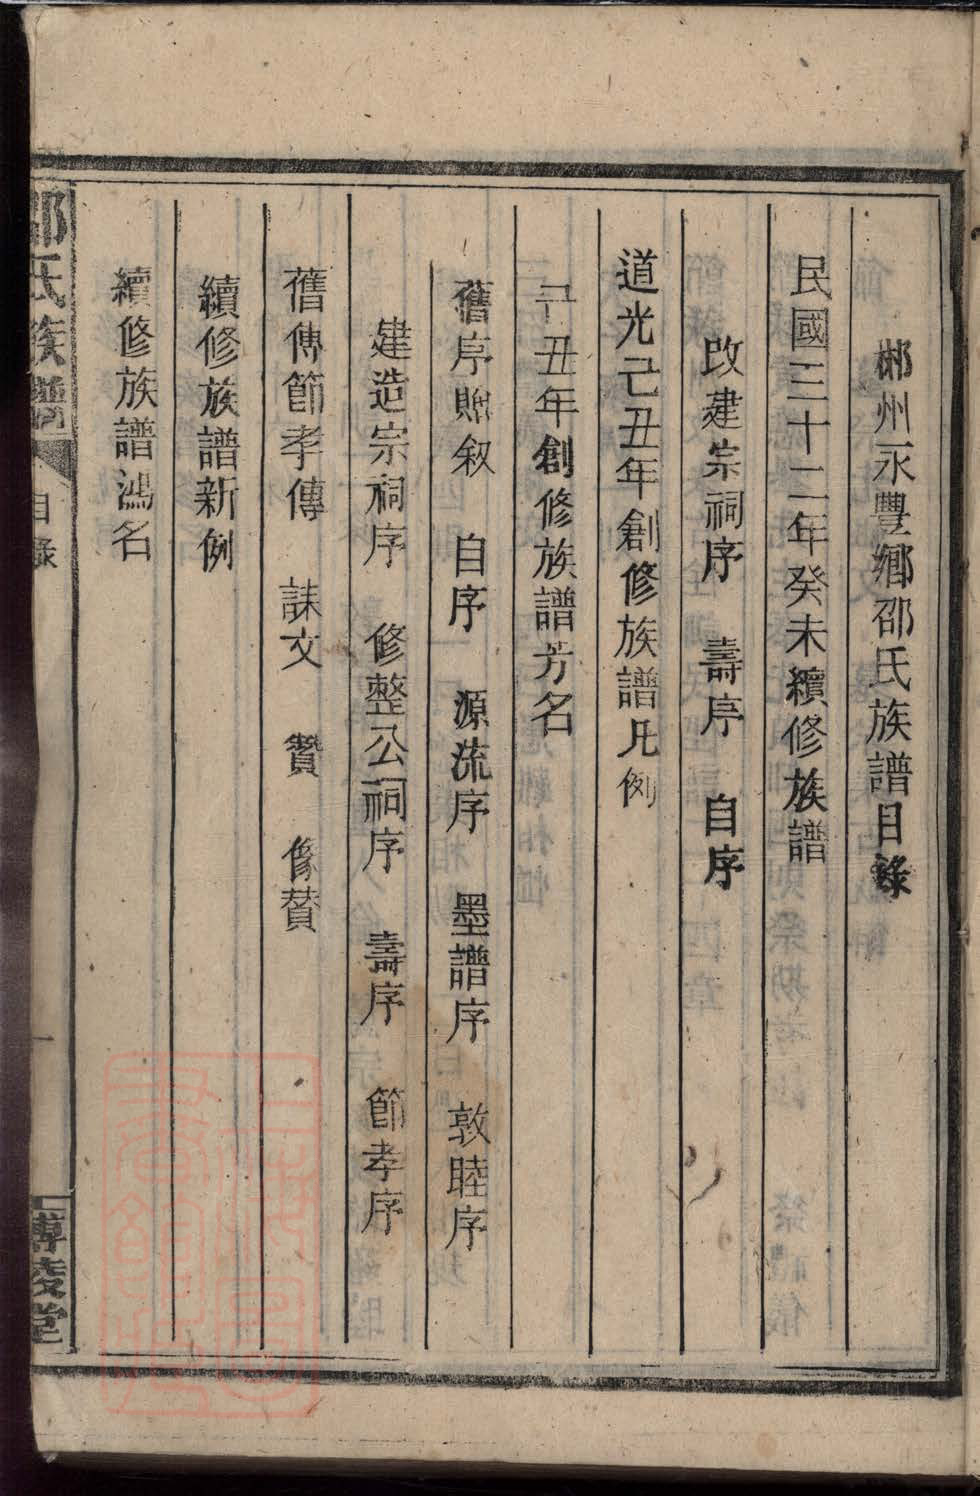 郴州永豐鄉邵氏族譜目錄
民國三十二年癸未續修族譜
改建宗祠序 壽序 自序
道光己丑年創修族譜凡例
己丑年創修族譜芳名
舊序贈敘 自序 源流序 墨譜序 敦睦序
建造宗祠序 修整公祠序 壽序 節孝序
舊傳節孝傳 誄文 贊 像贊
續修族譜新例
續修族譜鴻名
邵氏族譜 目錄 一 博陵堂